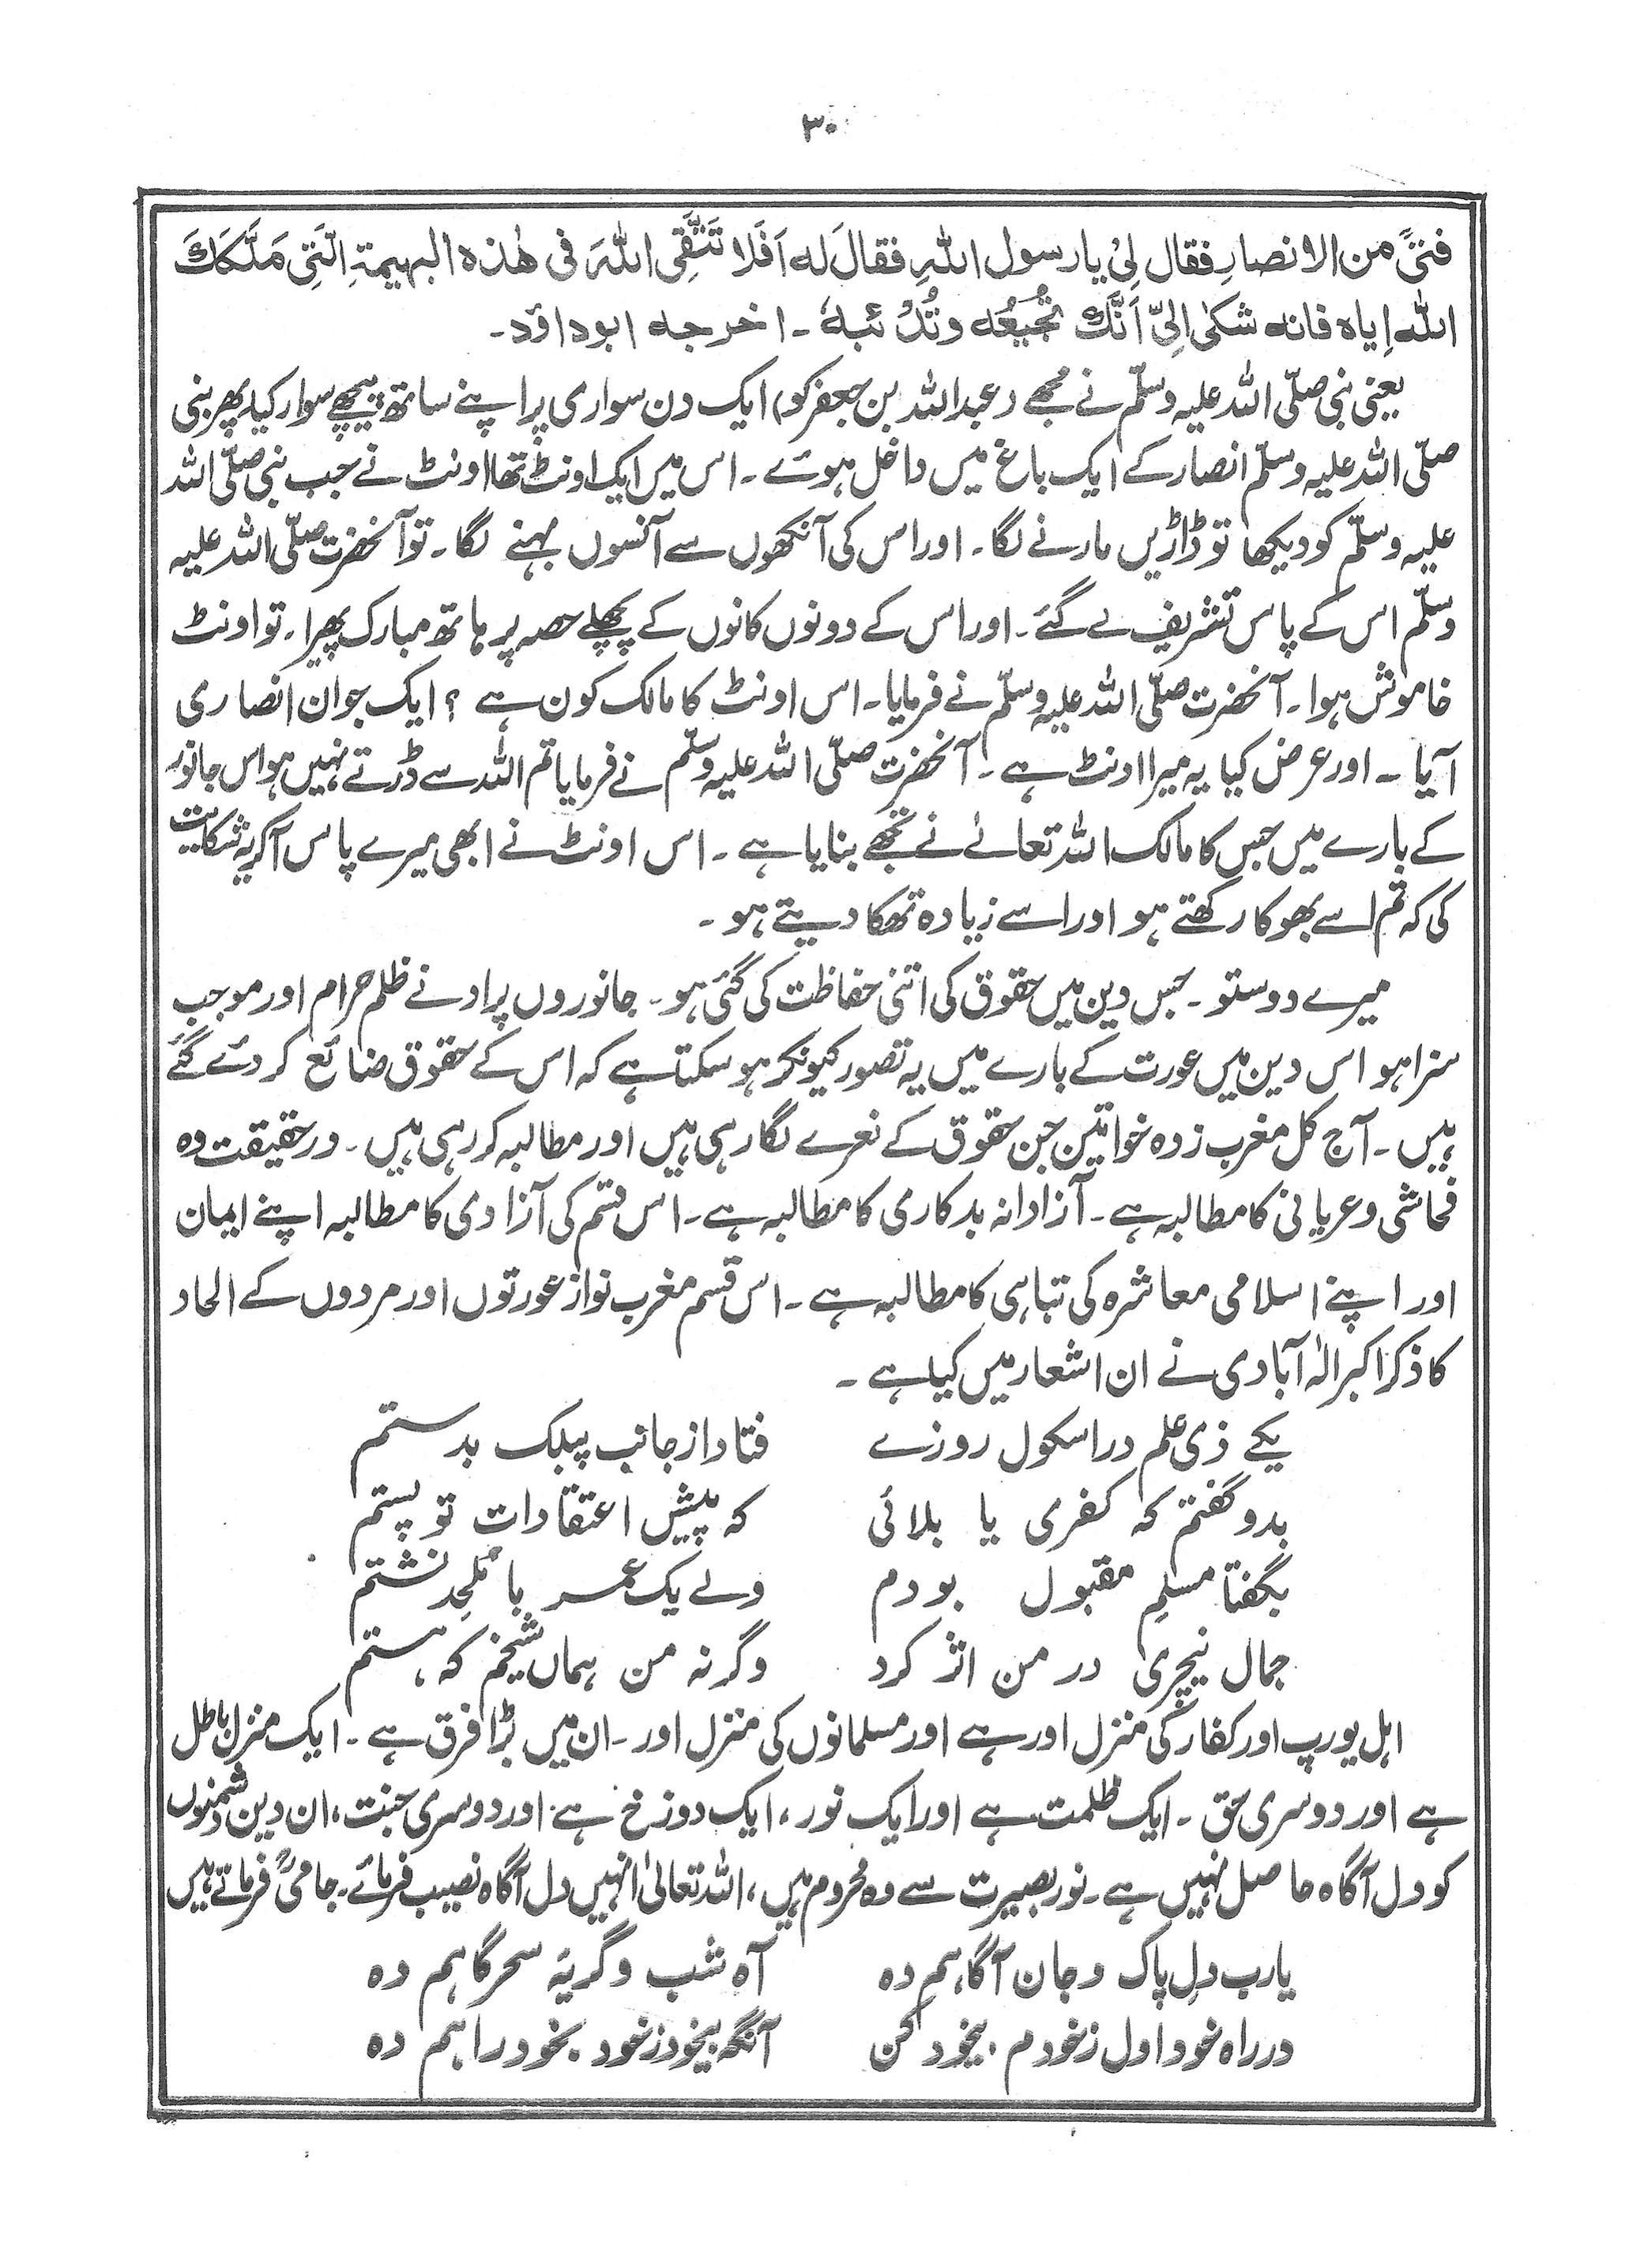 ۳۰
فتیً من الانصارِ فقال لِیْ یارسول اللہِ فقالَ له اَفَلا تَتَّقِی اللہَ فی ھٰذہ البهیمۃِ الَّتِی مَلَّکَكَ
اللہ اِیاہ فانه شکیٰ اِلیَّ اَنَّكَ تُجِیْعُه وتُدْئبه۔ اخرجه ابوداؤد۔
یعنی نبی صلّی اللہ علیہ وسلّم نے مجھے (عبداللہ بن جعفر کو) ایک دن سواری پر اپنے ساتھ پیچھے سوار کیا۔ پھر نبی
صلّی اللہ علیہ وسلّم انصار کے ایک باغ میں داخل ہوئے۔ اس میں ایک اونٹ تھا اونٹ نے جب نبی صلّی اللہ
علیہ وسلّم کو دیکھا تو ڈاڑیں مارنے لگا۔ اور اس کی آنکھوں سے آنسوں بہنے لگا۔ تو آنحضرت صلّی اللہ علیہ
وسلّم اس کے پاس تشریف لے گئے۔ اور اس کے دونوں کانوں کے پچھلے حصہ پر ہاتھ مبارک پھیرا۔ تو اونٹ
خاموش ہوا۔ آنحضرت صلّی اللہ علیہ وسلّم نے فرمایا۔ اس اونٹ کا مالک کون ہے ؟ ایک جوان انصاری
آیا۔ اور عرض کیا یہ میرا اونٹ ہے۔ آنحضرت صلّی اللہ علیہ وسلّم نے فرمایا تم اللہ سے ڈرتے نہیں ہو اس جانور
کے بارے میں جس کا مالک اللہ تعالےٰ نے تجھے بنایا ہے۔ اس اونٹ نے ابھی میرے پاس آکر یہ شکایت
کی کہ تم اسے بھوکا رکھتے ہو اور اسے زیادہ تھکا دیتے ہو۔
میرے دوستو۔ جس دین میں حقوق کی اتنی حفاظت کی گئی ہو۔ جانوروں پر ادنے ظلم حرام اور موجب
سزا ہو اس دین میں عورت کے بارے میں یہ تصور کیونکر ہو سکتا ہے کہ اس کے حقوق ضائع کر دئے گئے
ہیں۔ آج کل مغرب زدہ خواتین جن حقوق کے نعرے لگا رہی ہیں اور مطالبہ کر رہی ہیں۔ درحقیقت وہ
فحاشی و عریانی کا مطالبہ ہے۔ آزادانہ بدکاری کا مطالبہ ہے۔ اس قسم کی آزادی کا مطالبہ اپنے ایمان
اور اپنے اسلامی معاشرہ کی تباہی کا مطالبہ ہے۔ اس قسم مغرب نواز عورتوں اور مردوں کے الحاد
کا ذکر اکبر الٰہ آبادی نے ان اشعار میں کیا ہے۔
یکے ذی علم در اسکول روزے فتاد از جانب پبلک بدستم
بدو گفتم کہ کفری یا بلائی کہ پیش اعتقادات تو پستم
بگفتا مسلمِ مقبول بودم ولے یک عمر با ملحد نشستم
جمال نیچری در من اثر کرد وگرنہ من ہماں شیخم کہ ہستم
اہل یورپ اور کفار کی منزل اور ہے اور مسلمانوں کی منزل اور۔ ان میں بڑا فرق ہے۔ ایک منزل باطل
ہے اور دوسری حق۔ ایک ظلمت ہے اور ایک نور، ایک دوزخ ہے اور دوسری جنت، ان دین دشمنوں
کو دل آگاہ حاصل نہیں ہے۔ نور بصیرت سے وہ محروم ہیں، اللہ تعالیٰ انہیں دل آگاہ نصیب فرمائے۔ جامیؒ فرماتے ہیں
یارب دلِ پاک و جان آگاہم دہ آہ شب و گریۂ سحر گاہم دہ
در راہ خود اول ز خودم بیخود کن آنگہ بیخود ز خود بخود راہم دہ